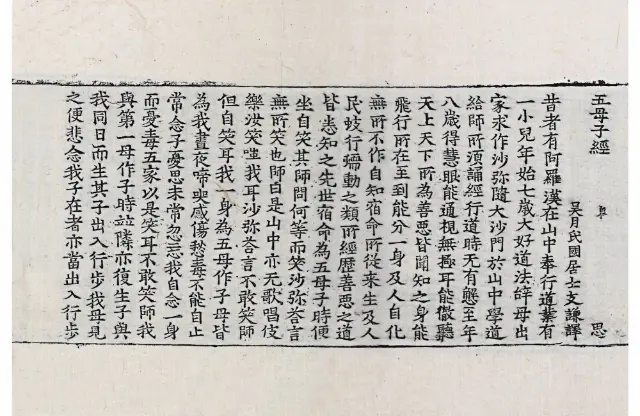 五母子經
思
吳月氏國居士支謙譯
昔者有阿羅漢在山中奉行道業有
一小兒年始七歲大好道法辝母出
家求作沙弥隨大沙門於山中學道
給師所須誦經行道時无有懈至年
八歲得慧眼能通視無極耳能徹聽
天上天下所為善惡皆聞知之身能
飛行所在至到能分一身及人自化
無所不作自知宿命所從来生及人
民蚑行蠕動之類所經歷善惡之道
皆悉知之先世宿命為五母子時便
坐自笑其師問何等而笑沙弥荅言
無所笑也師曰是山中亦无歌唱伎
樂汝笑我耳沙弥荅言不敢笑師
但自笑耳我一身為五母作子母皆
為我晝夜啼哭感傷愁毒不能自止
常念子憂思未常忽忘我自念一身
而憂毒五家以是笑耳不敢笑師我
與第一母作子時竝隣亦復生子與
我同日而生其子出入行步我母見
之便悲念我子在者亦當出入行步